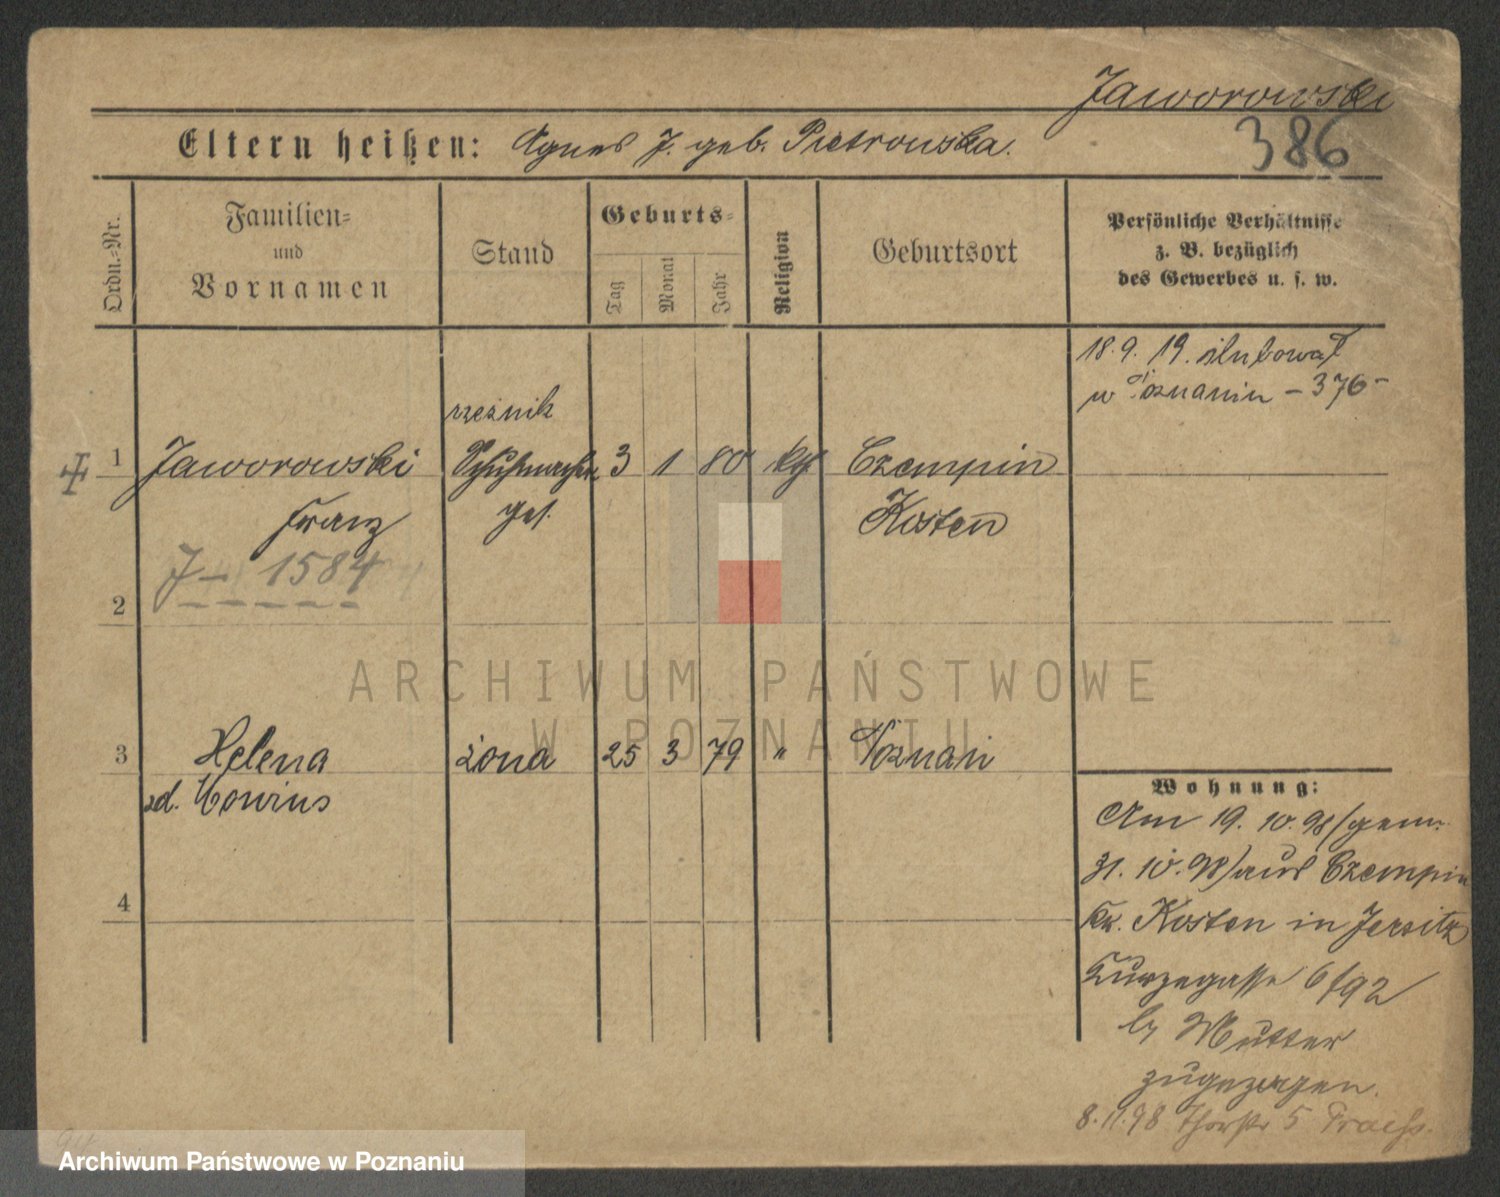 Jaworowski
386
Eltern heißen: Agnes J. geb. Pietrowska.
Ordn.-Nr.
Familien-
und
Vornamen
Stand
Geburts-
Tag
Monat
Jahr
Religion
Geburtsort
Persönliche Verhältnisse
z. B. bezüglich
des Gewerbes u. s. w.
18. 9. 19. ślubował
w Poznaniu - 376 -
rzeźnik
1 Jaworowski Schuhmacher 3 1 80 kth Czempin
Franz ges. Kosten
J - 1584
2
ARCHIWUM PAŃSTWOWE
W POZNANIU
3 Helena żona 25 3 79 " Poznań
zd.
4
Wohnung:
Am 19. 10. 98 (gem.
31. 10. 98) aus Czempin
Kr. Kosten in Jersitz
Kurzegasse 6/92
by Mutter
zugezogen.
8. 11. 98 5
Archiwum Państwowe w Poznaniu